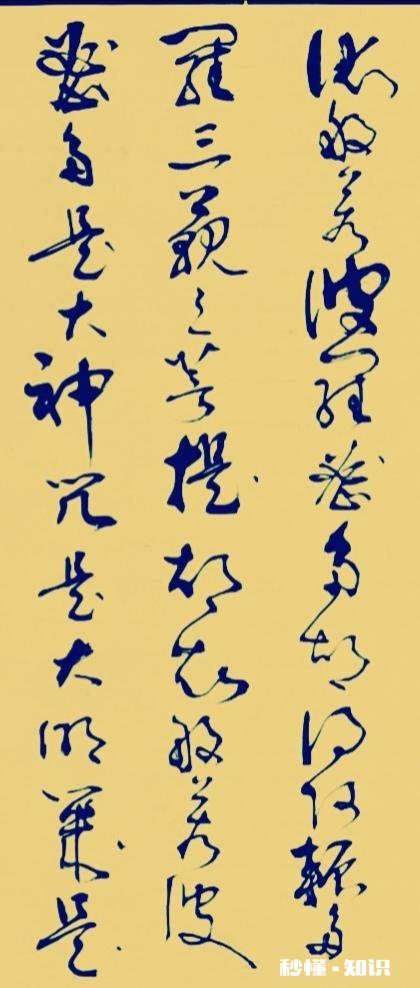 依般若波羅蜜多故得阿耨多
羅三藐三菩提故知般若波
蜜多是大神咒是大明咒是
秒懂·知识